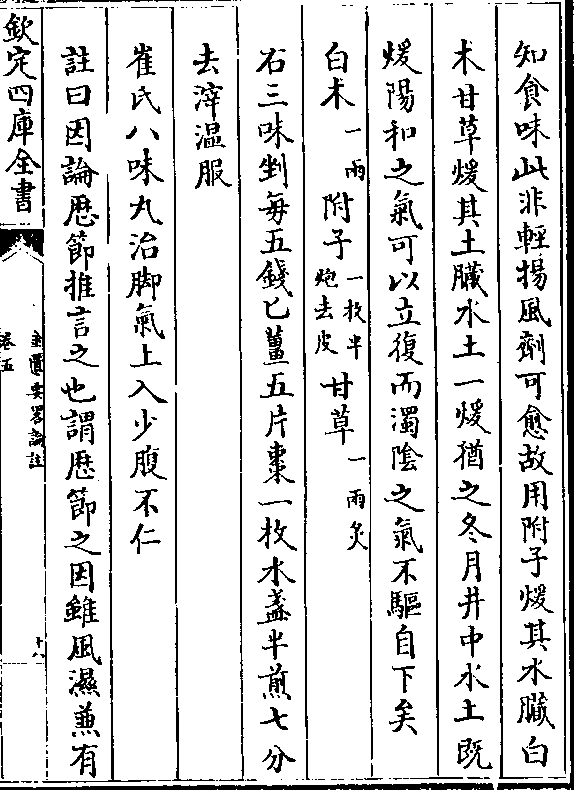 知食味此非輕揚風劑可愈故用附子煖其水臟白
术甘草煖其土臟水土一煖猶之冬月井中水土既
煖陽和之氣可以立復而濁陰之氣不驅自下矣
白术一兩附子一枚半炮去皮甘草一兩炙
右三味剉每五錢匕薑五片棗一枚水盞半煎七分
去滓温服
崔氏八味丸治脚氣上入少腹不仁
註曰因論歴節推言之也謂歴節之因雖風濕兼有
欽定四庫全書
金匱要畧論註
卷五
十八